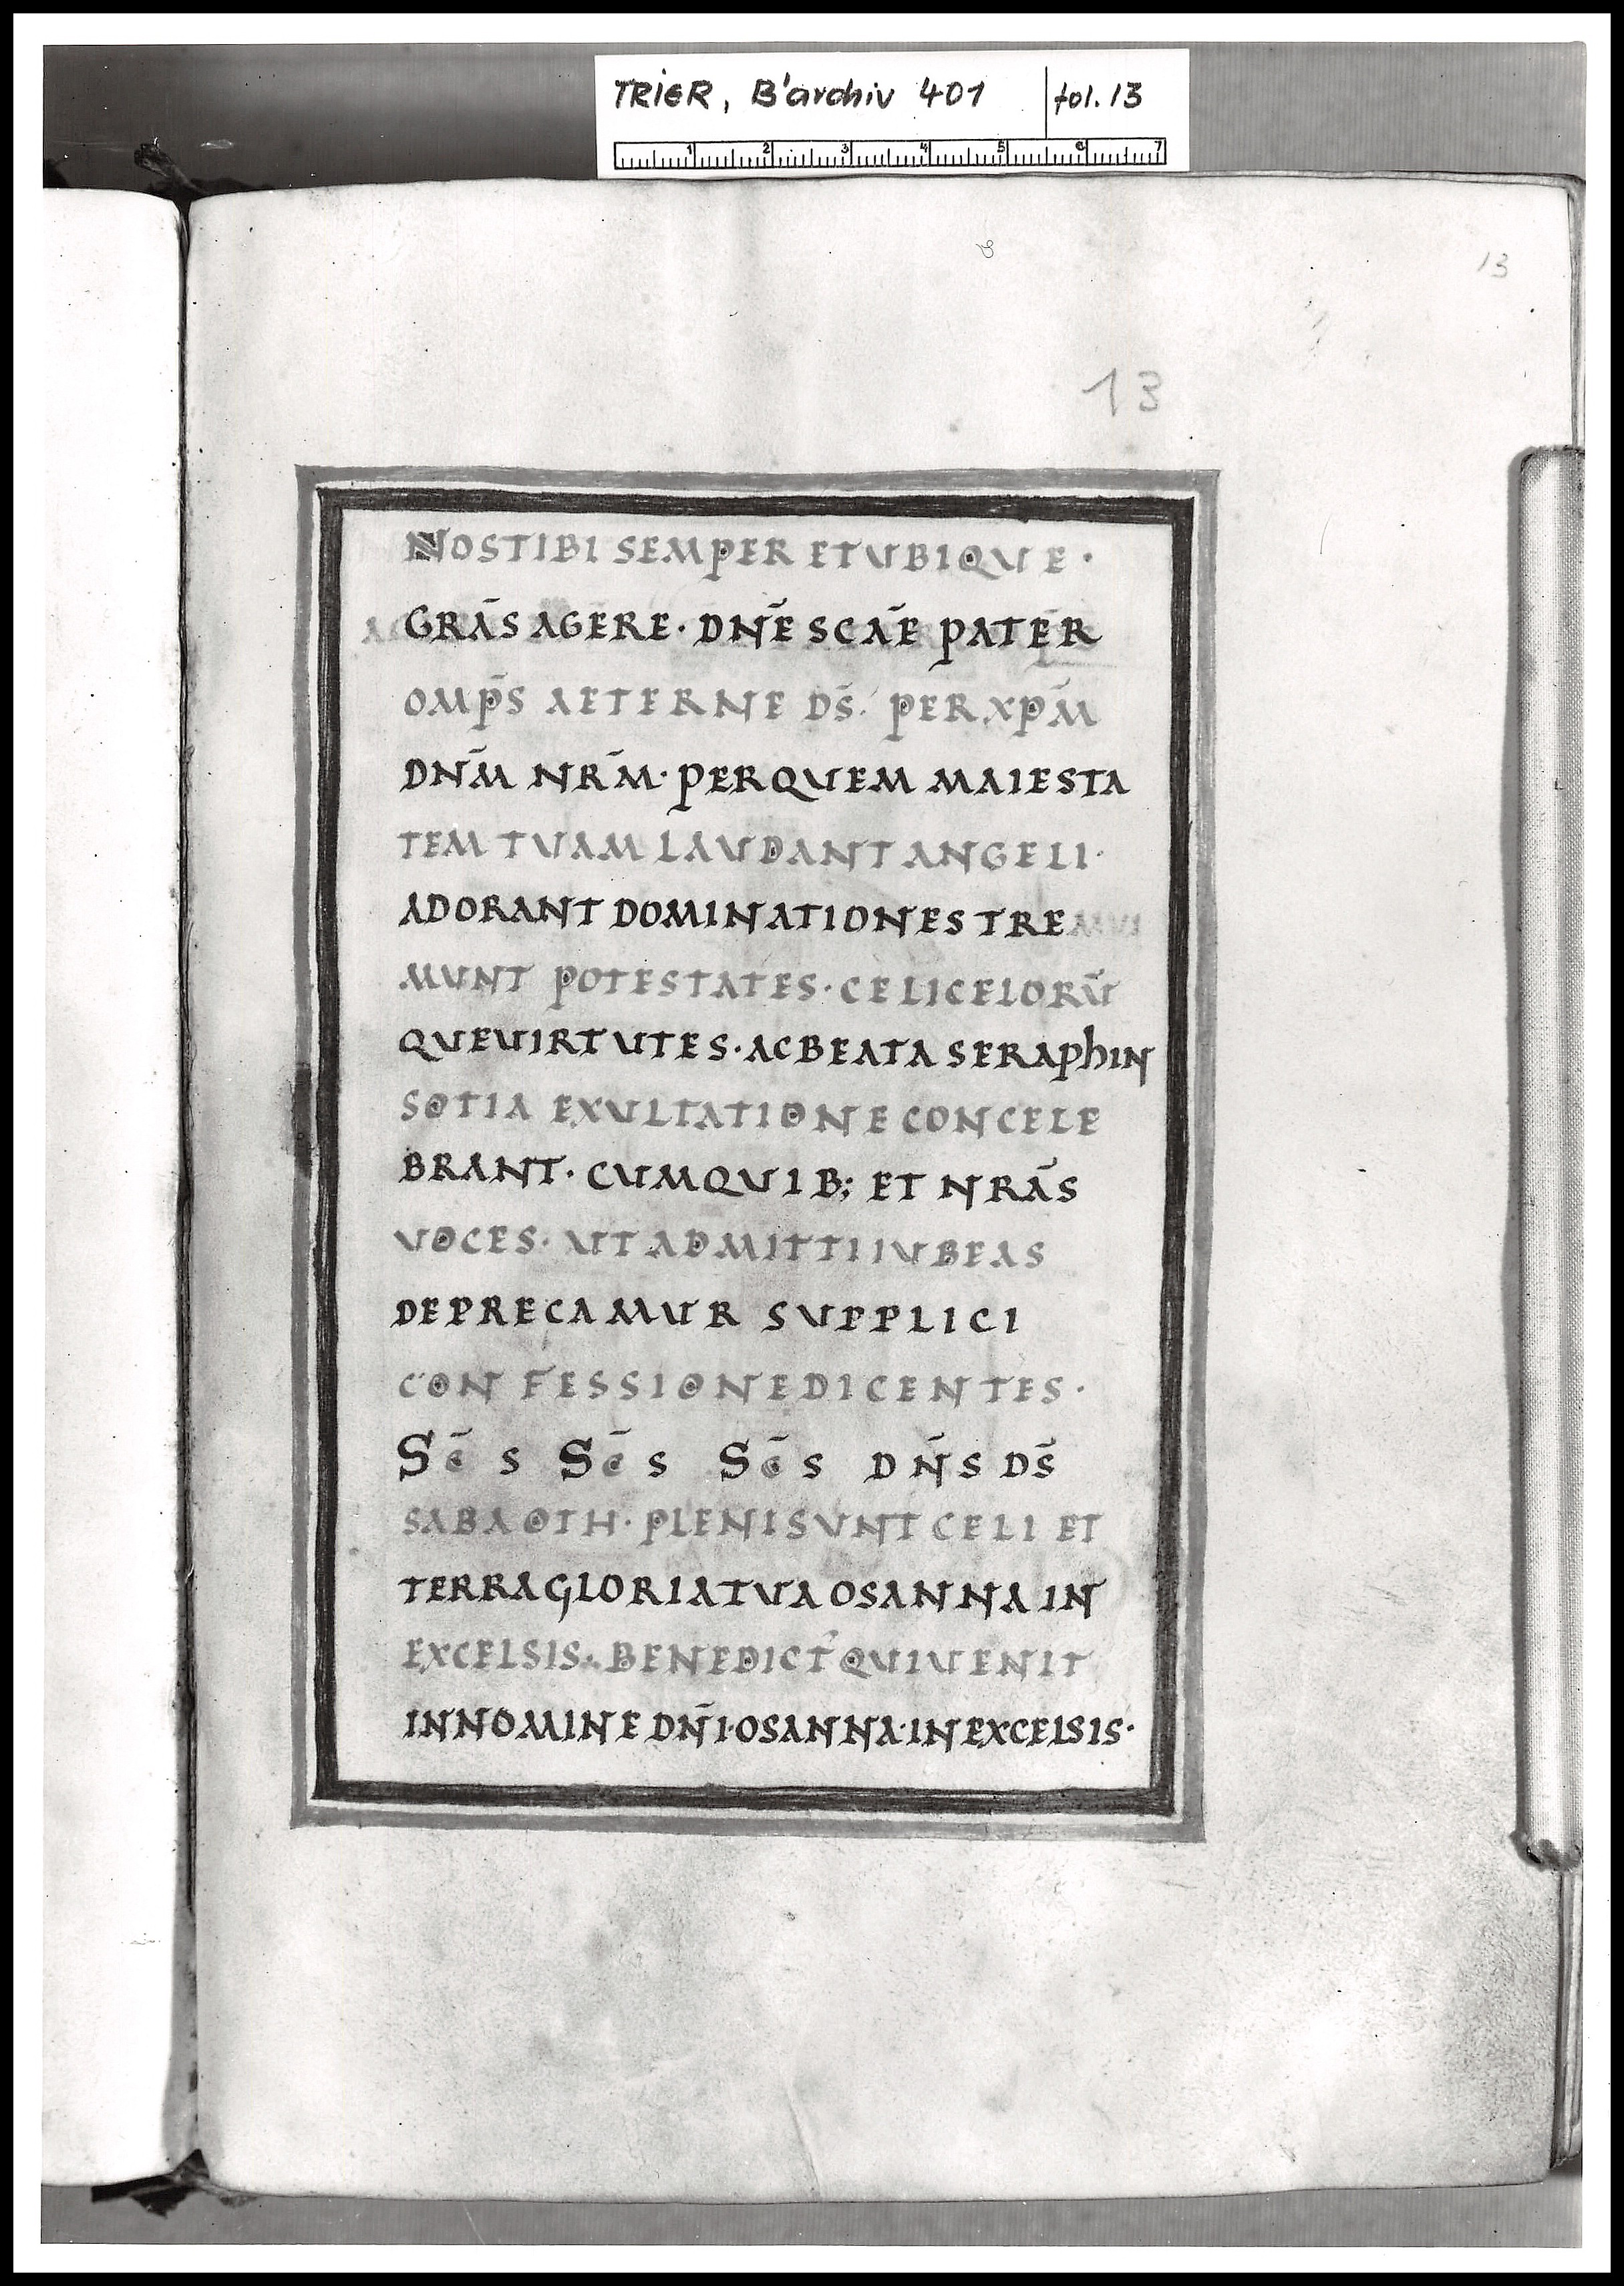 TRIER, B'archiv 401 fol. 13
1 2 3 4 5 6 7
13
13
NOSTIBI SEMPER ETUBIQUE·
GRĀS AGERE· DNĒ SCAĒ PATER
OMP̄S AETERNE DS̄· PER XPM̄
DNM̄ NRM̄· PERQUEM MAIESTA
TEM TUAM LAUDANT ANGELI·
ADORANT DOMINATIONES TREMUI
MUNT POTESTATES· CELICELORŪ
QUEUIRTUTES· ACBEATA SERAPhIN
SOTIA EXULTATIONE CONCELE
BRANT· CUMQUIB; ET NRĀS
UOCES· UT ADMITTI IUBEAS
DEPRECAMUR SUPPLICI
CONFESSIONE DICENTES·
SC̄S SC̄S SC̄S DN̄S DS̄
SABAOTH· PLENI SUNT CELI ET
TERRA GLORIA TUA OSANNA IN
EXCELSIS· BENEDICT' QUIUENIT
INNOMINE DN̄I·OSANNA·INEXCELSIS·